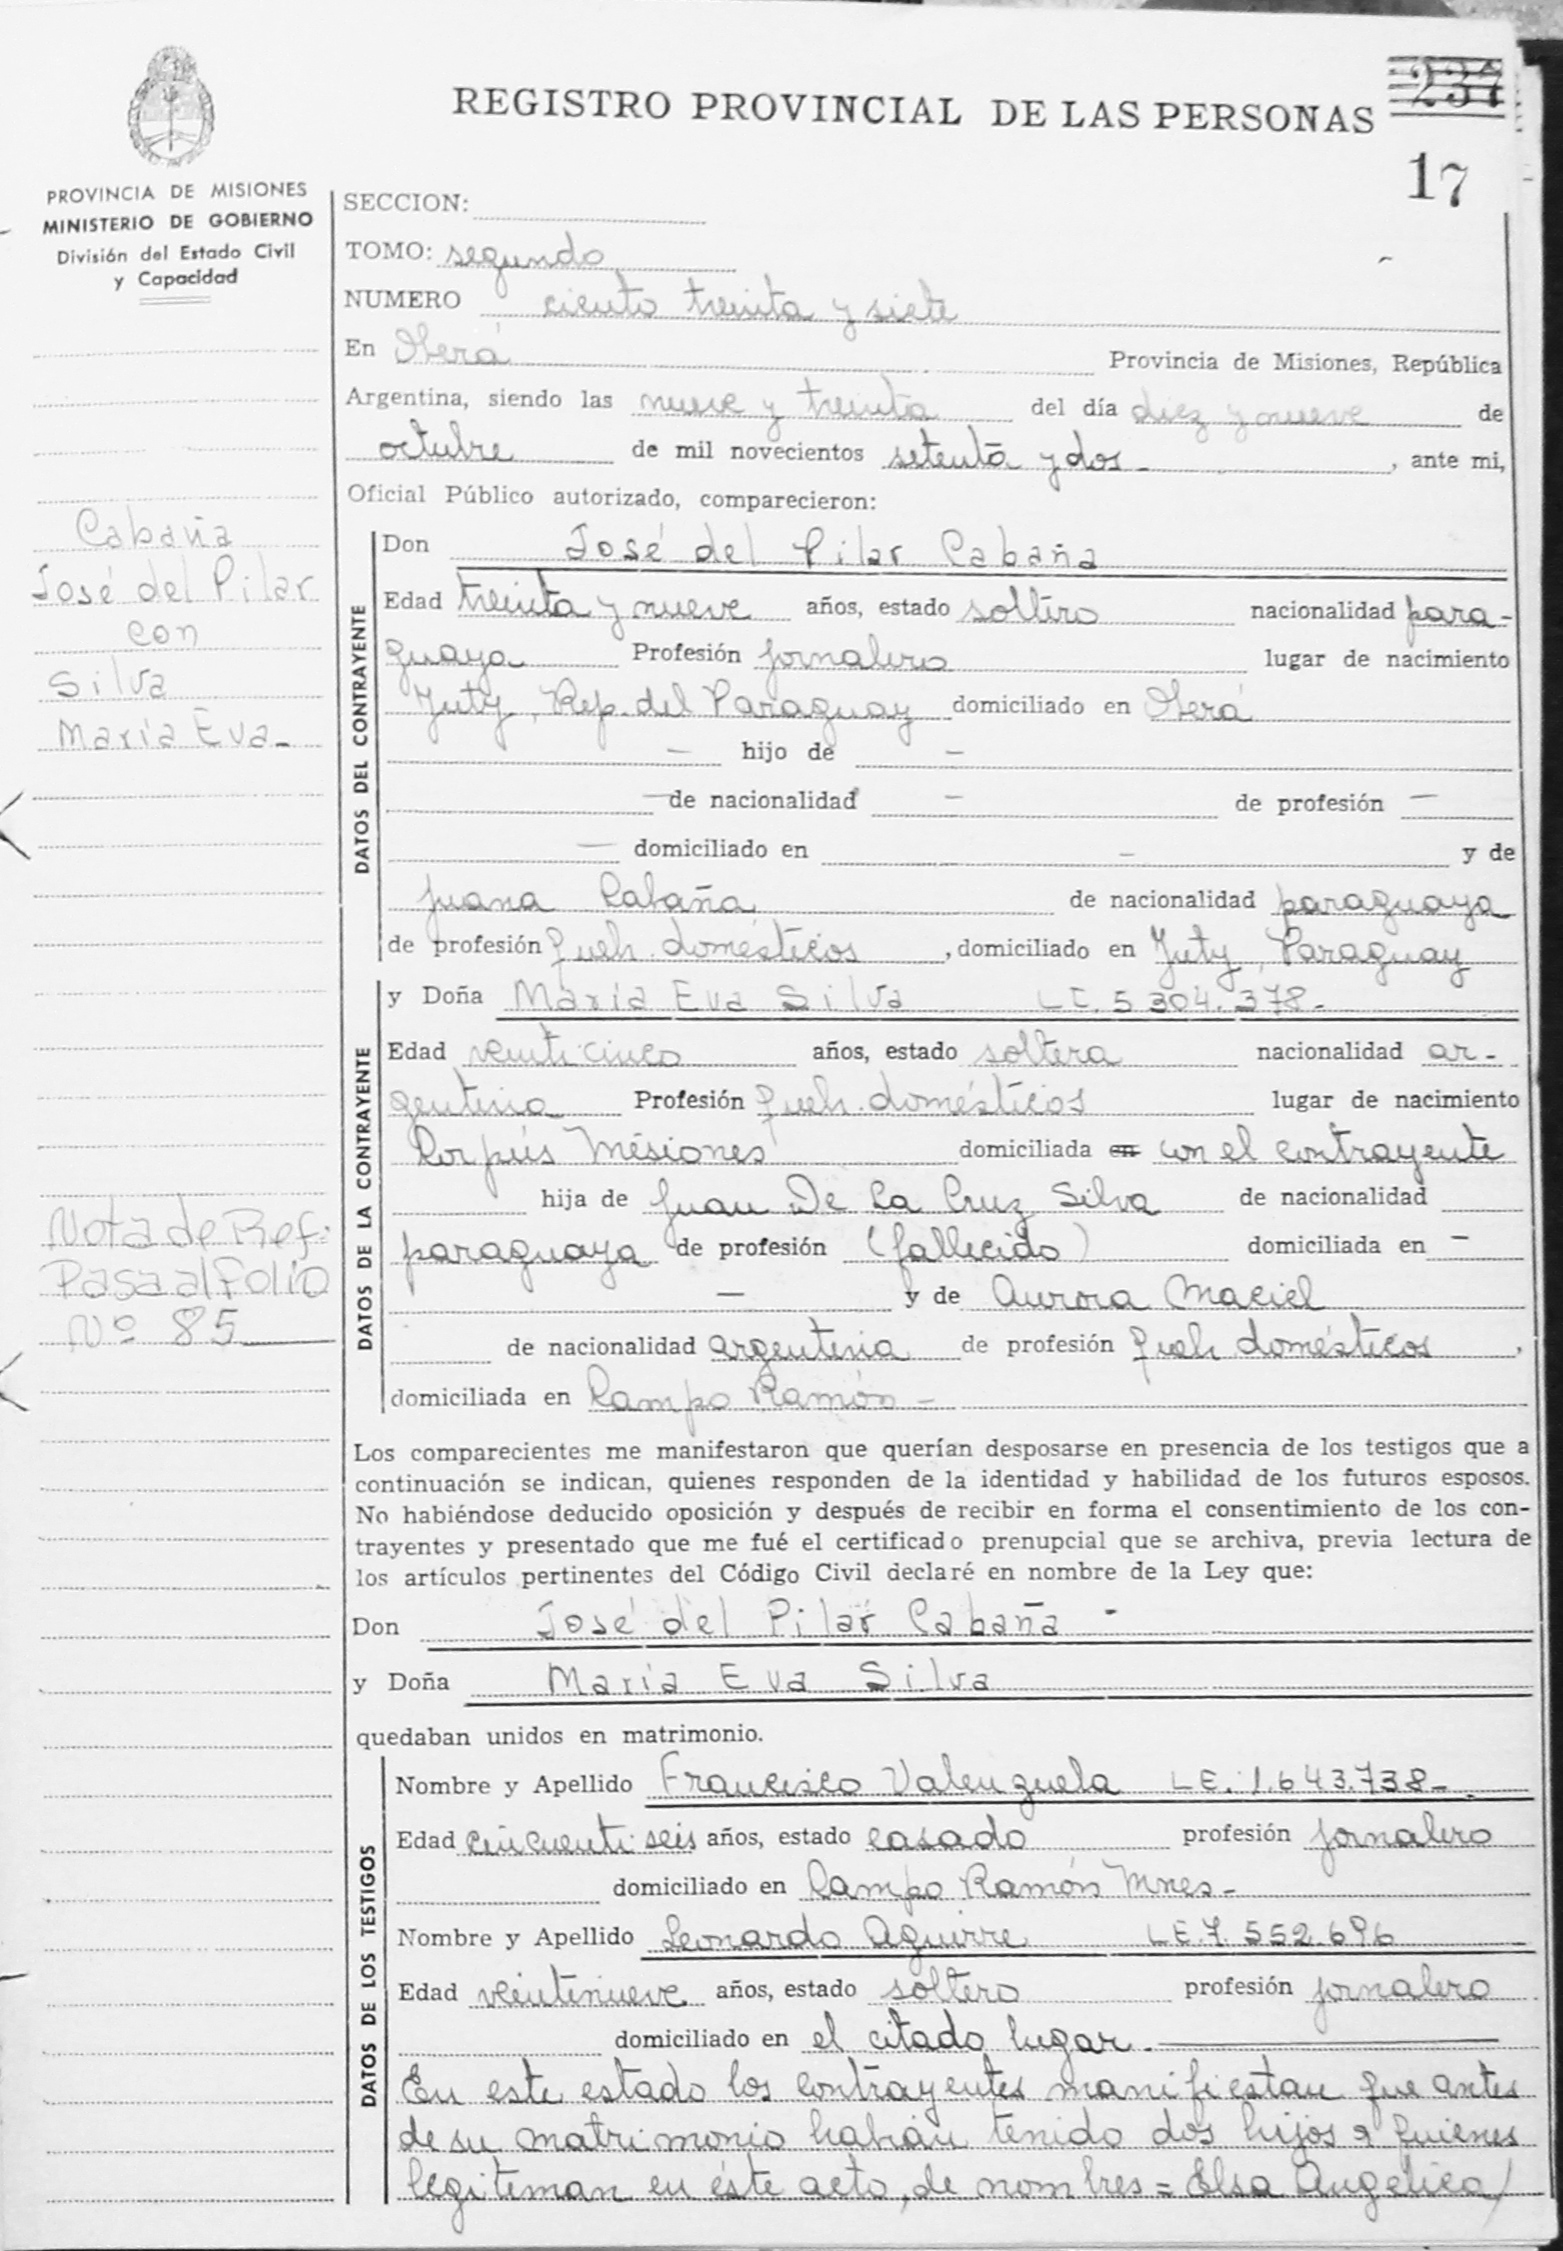 REGISTRO PROVINCIAL DE LAS PERSONAS
237
17
PROVINCIA DE MISIONES
MINISTERIO DE GOBIERNO
División del Estado Civil
y Capacidad
SECCION:
TOMO: segundo
NUMERO ciento treinta y siete
En Oberá Provincia de Misiones, República
Argentina, siendo las nueve y treinta del día diez y nueve de
octubre de mil novecientos setenta y dos - , ante mi,
Oficial Público autorizado, comparecieron:
Cabaña
José del Pilar
con
Silva
María Eva -
DATOS DEL CONTRAYENTE
Don José del Pilar Cabaña
Edad treinta y nueve años, estado soltero nacionalidad para-
guaya Profesión jornalero lugar de nacimiento
Yuty, Rep. del Paraguay domiciliado en Oberá
— hijo de —
— de nacionalidad — de profesión —
— domiciliado en — y de
Juana Cabaña de nacionalidad paraguaya
de profesión queh. domésticos , domiciliado en Yuty, Paraguay
DATOS DE LA CONTRAYENTE
y Doña María Eva Silva LC. 5.304.378-
Edad veinticinco años, estado soltera nacionalidad ar-
gentina Profesión queh. domésticos lugar de nacimiento
Corpus Misiones domiciliada en con el contrayente
hija de Juan De La Cruz Silva de nacionalidad
paraguaya de profesión (fallecido) domiciliada en —
— y de Aurora Maciel
de nacionalidad argentina de profesión queh domésticos ,
domiciliada en Campo Ramón -
Nota de Ref.
Pasa al Folio
Nº 85
Los comparecientes me manifestaron que querían desposarse en presencia de los testigos que a
continuación se indican, quienes responden de la identidad y habilidad de los futuros esposos.
No habiéndose deducido oposición y después de recibir en forma el consentimiento de los con-
trayentes y presentado que me fué el certificado prenupcial que se archiva, previa lectura de
los artículos pertinentes del Código Civil declaré en nombre de la Ley que:
Don José del Pilar Cabaña -
y Doña María Eva Silva
quedaban unidos en matrimonio.
DATOS DE LOS TESTIGOS
Nombre y Apellido Francisco Valenzuela LE. 1.643.738-
Edad cincuenti seis años, estado casado profesión jornalero
domiciliado en Campo Ramón Mnes -
Nombre y Apellido Leonardo Aguirre LE.7.552.696
Edad veintinueve años, estado soltero profesión jornalero
domiciliado en el citado lugar.
En este estado los contrayentes manifiestan que antes
de su matrimonio habían tenido dos hijos a quienes
legitiman en éste acto, de nombres = Elsa Angélica/